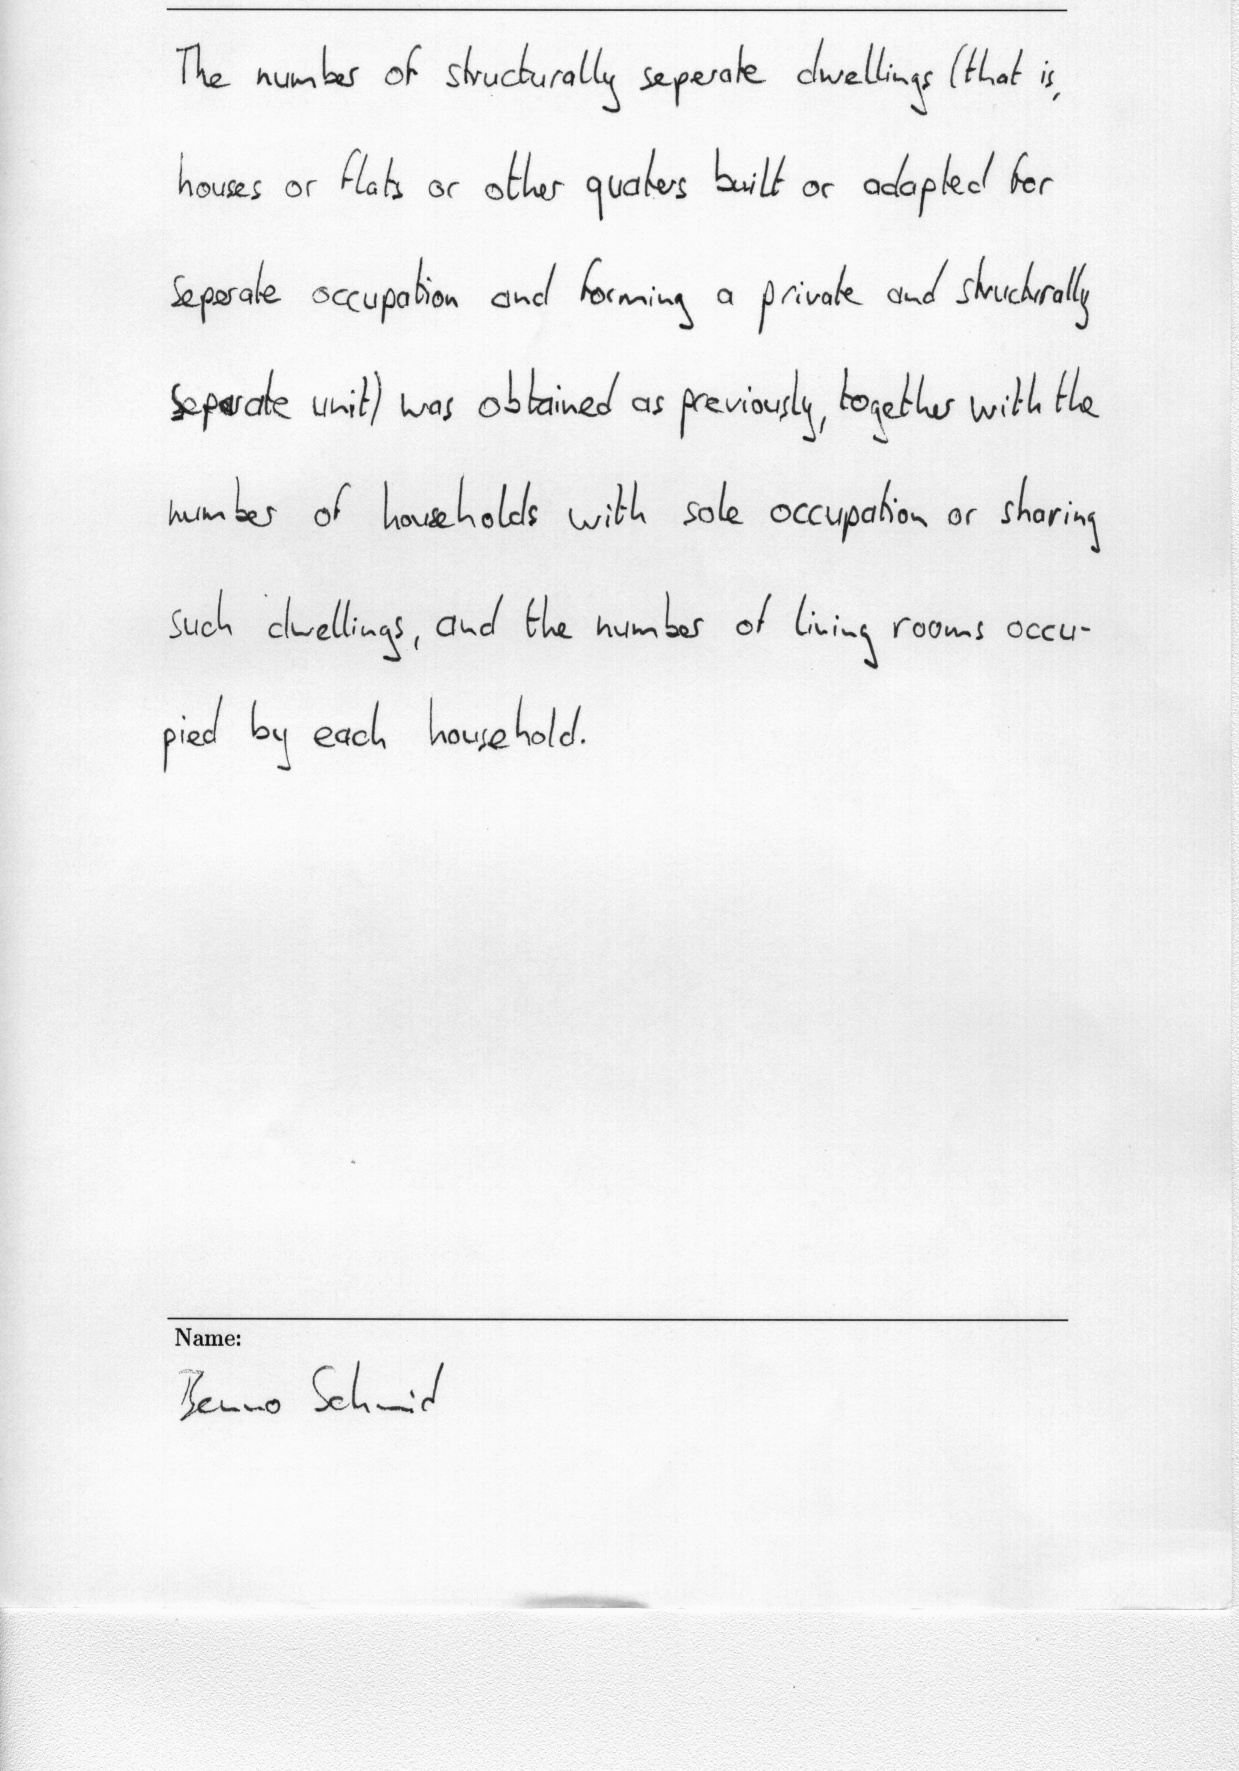 The number of structurally seperate dwellings (that is,
houses or flats or other quaters built or adapted for
seperate occupation and forming a private and structurally
separate unit) was obtained as previously, together with the
number of households with sole occupation or sharing
such dwellings, and the number of living rooms occu-
pied by each household.
Name:
Benno Schmid